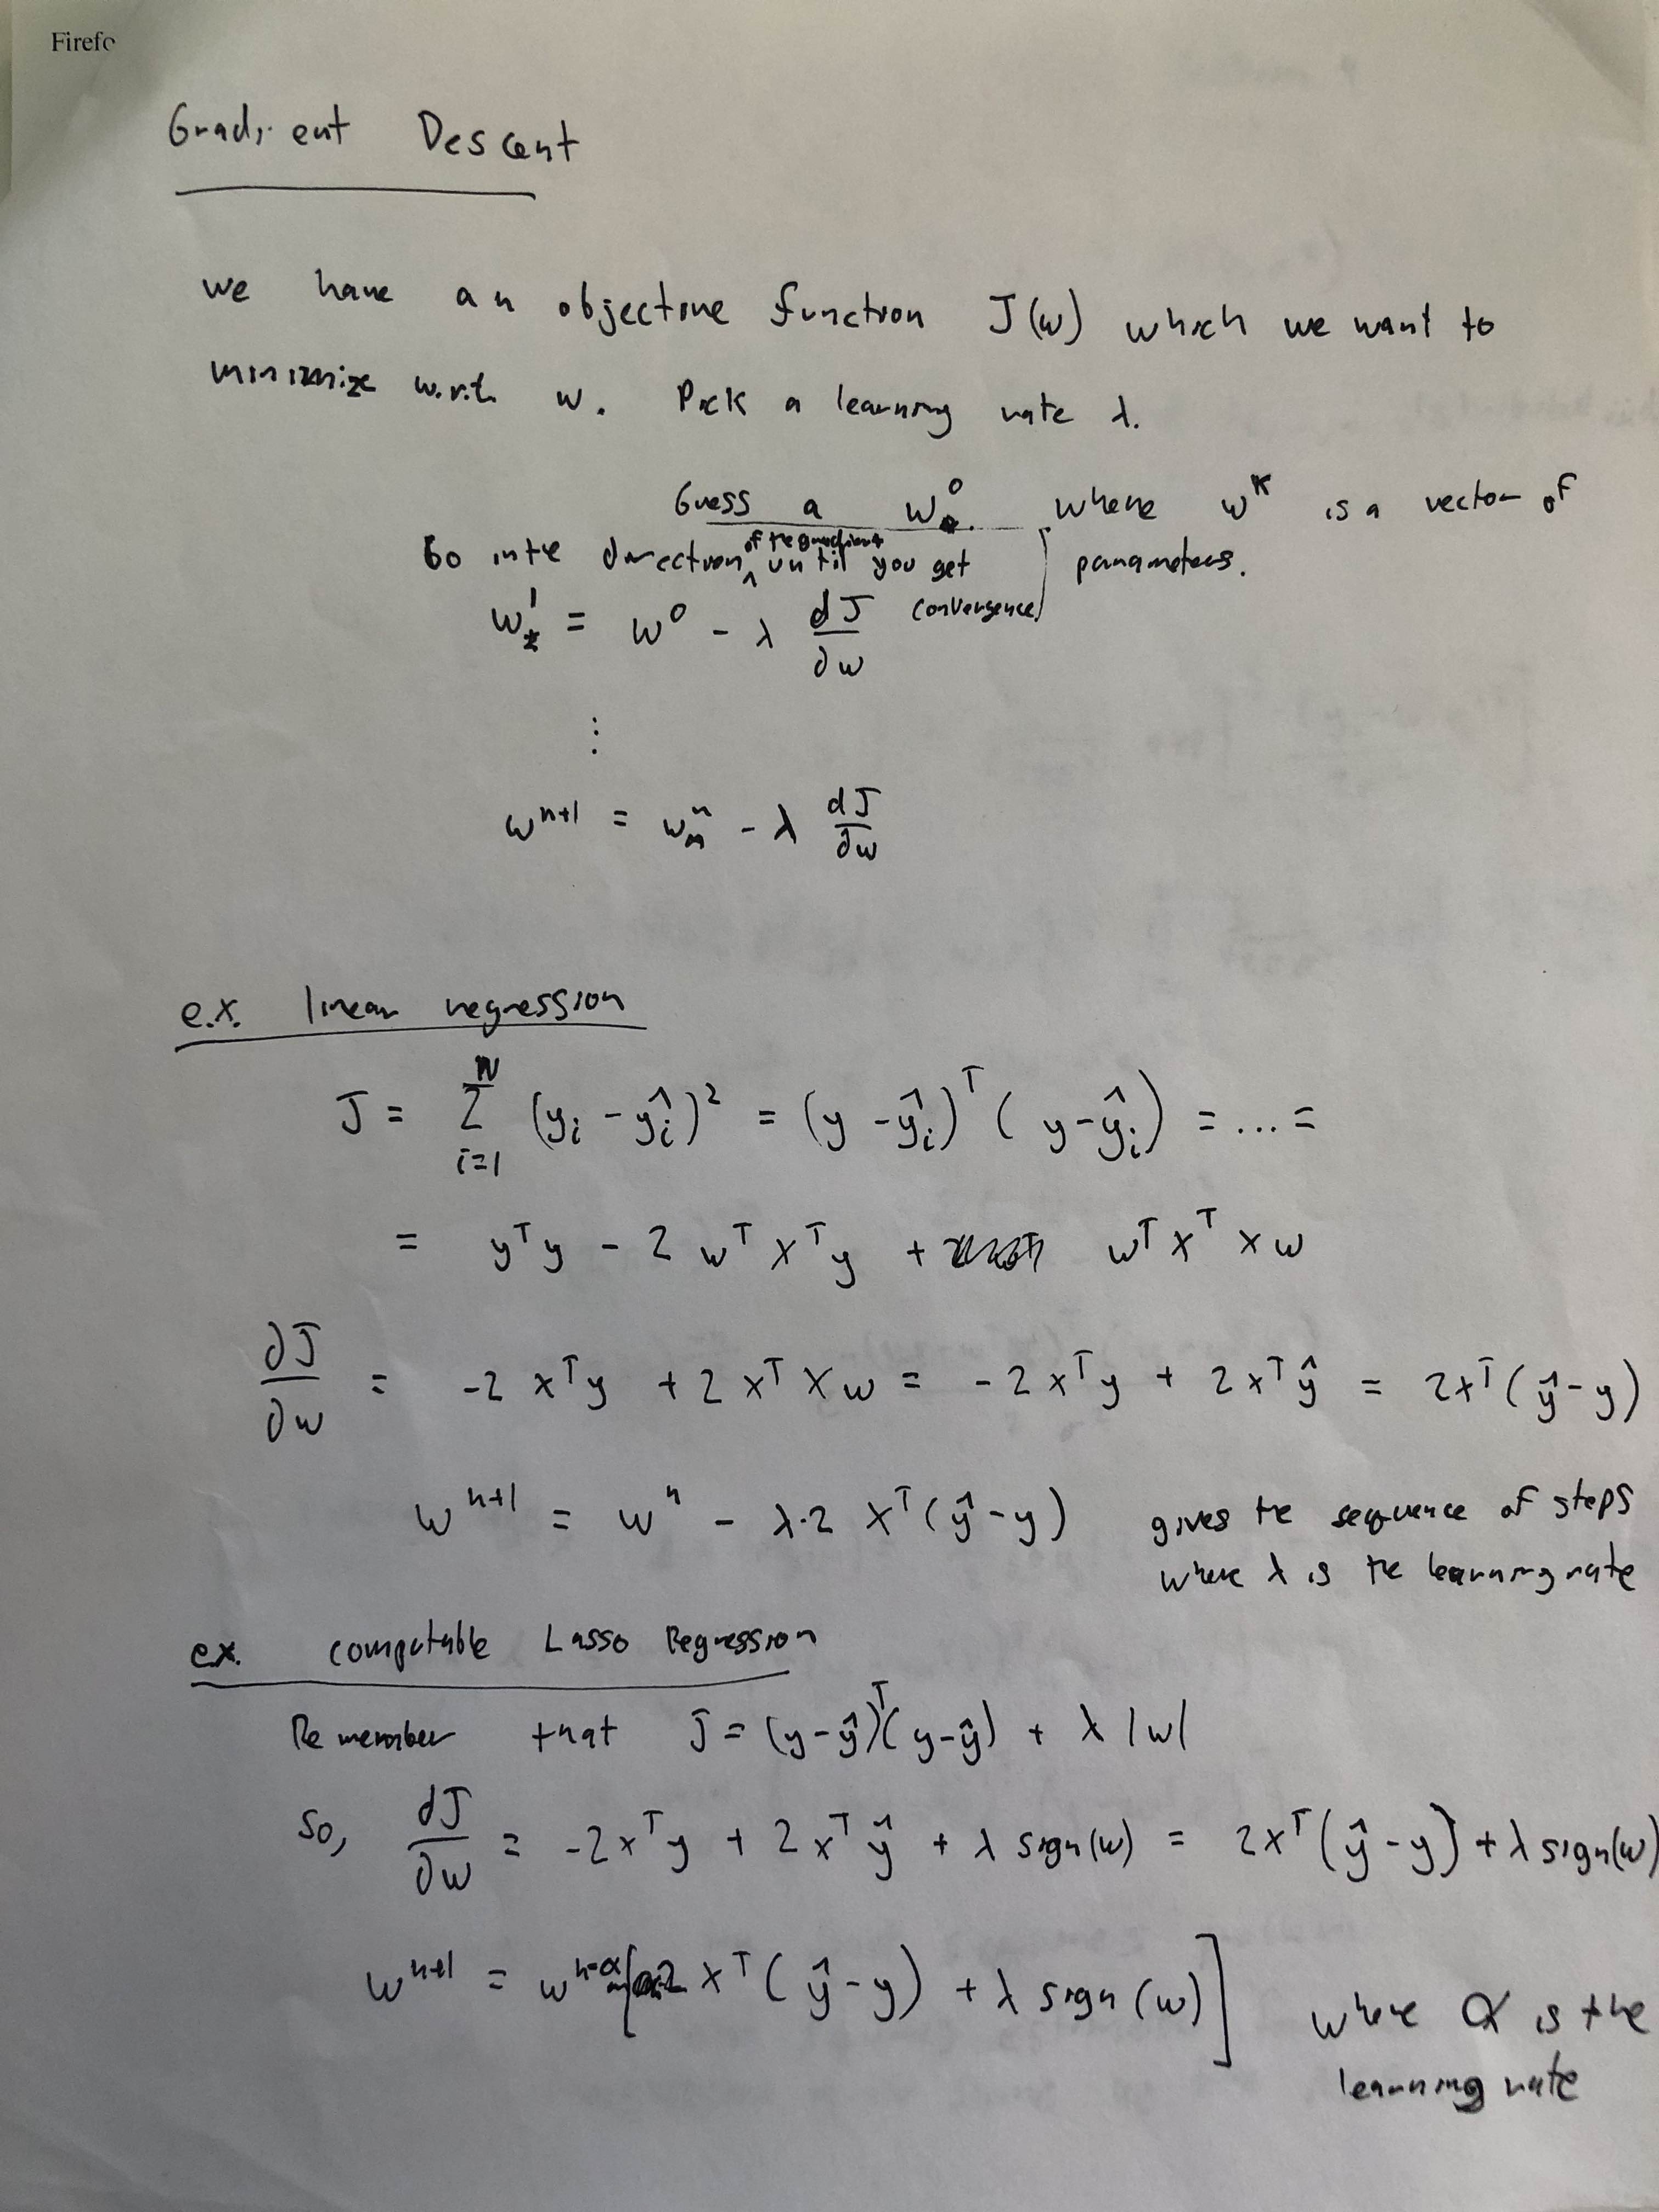 Firefo
Gradient Descent
we have an objective function J(w) which we want to
minimize w.r.t. w. Pick a learning rate λ.
Guess a w⁰. where wᴷ is a vector of
Go in the direction of the gradient until you get convergence
parameters.
w¹ = w⁰ - λ dJ/∂w
⋮
wⁿ⁺¹ = wⁿ - λ dJ/∂w
e.x. linear regression
J = Σ_{i=1}^{N} (yᵢ - ŷᵢ)² = (y - ŷᵢ)ᵀ (y - ŷᵢ) = ... =
= yᵀy - 2 wᵀ xᵀ y + wᵀ xᵀ x w
∂J/∂w = -2 xᵀy + 2 xᵀ x w = -2 xᵀy + 2 xᵀŷ = 2xᵀ(ŷ - y)
wⁿ⁺¹ = wⁿ - λ·2 xᵀ(ŷ - y) gives the sequence of steps
where λ is the learning rate
ex. computable Lasso Regression
Remember that J = (y-ŷ)ᵀ(y-ŷ) + λ |w|
So, dJ/∂w = -2xᵀy + 2xᵀŷ + λ sign(w) = 2xᵀ(ŷ - y) + λ sign(w)
wⁿ⁺¹ = wⁿ - α[2 xᵀ(ŷ - y) + λ sign(w)] where α is the
learning rate